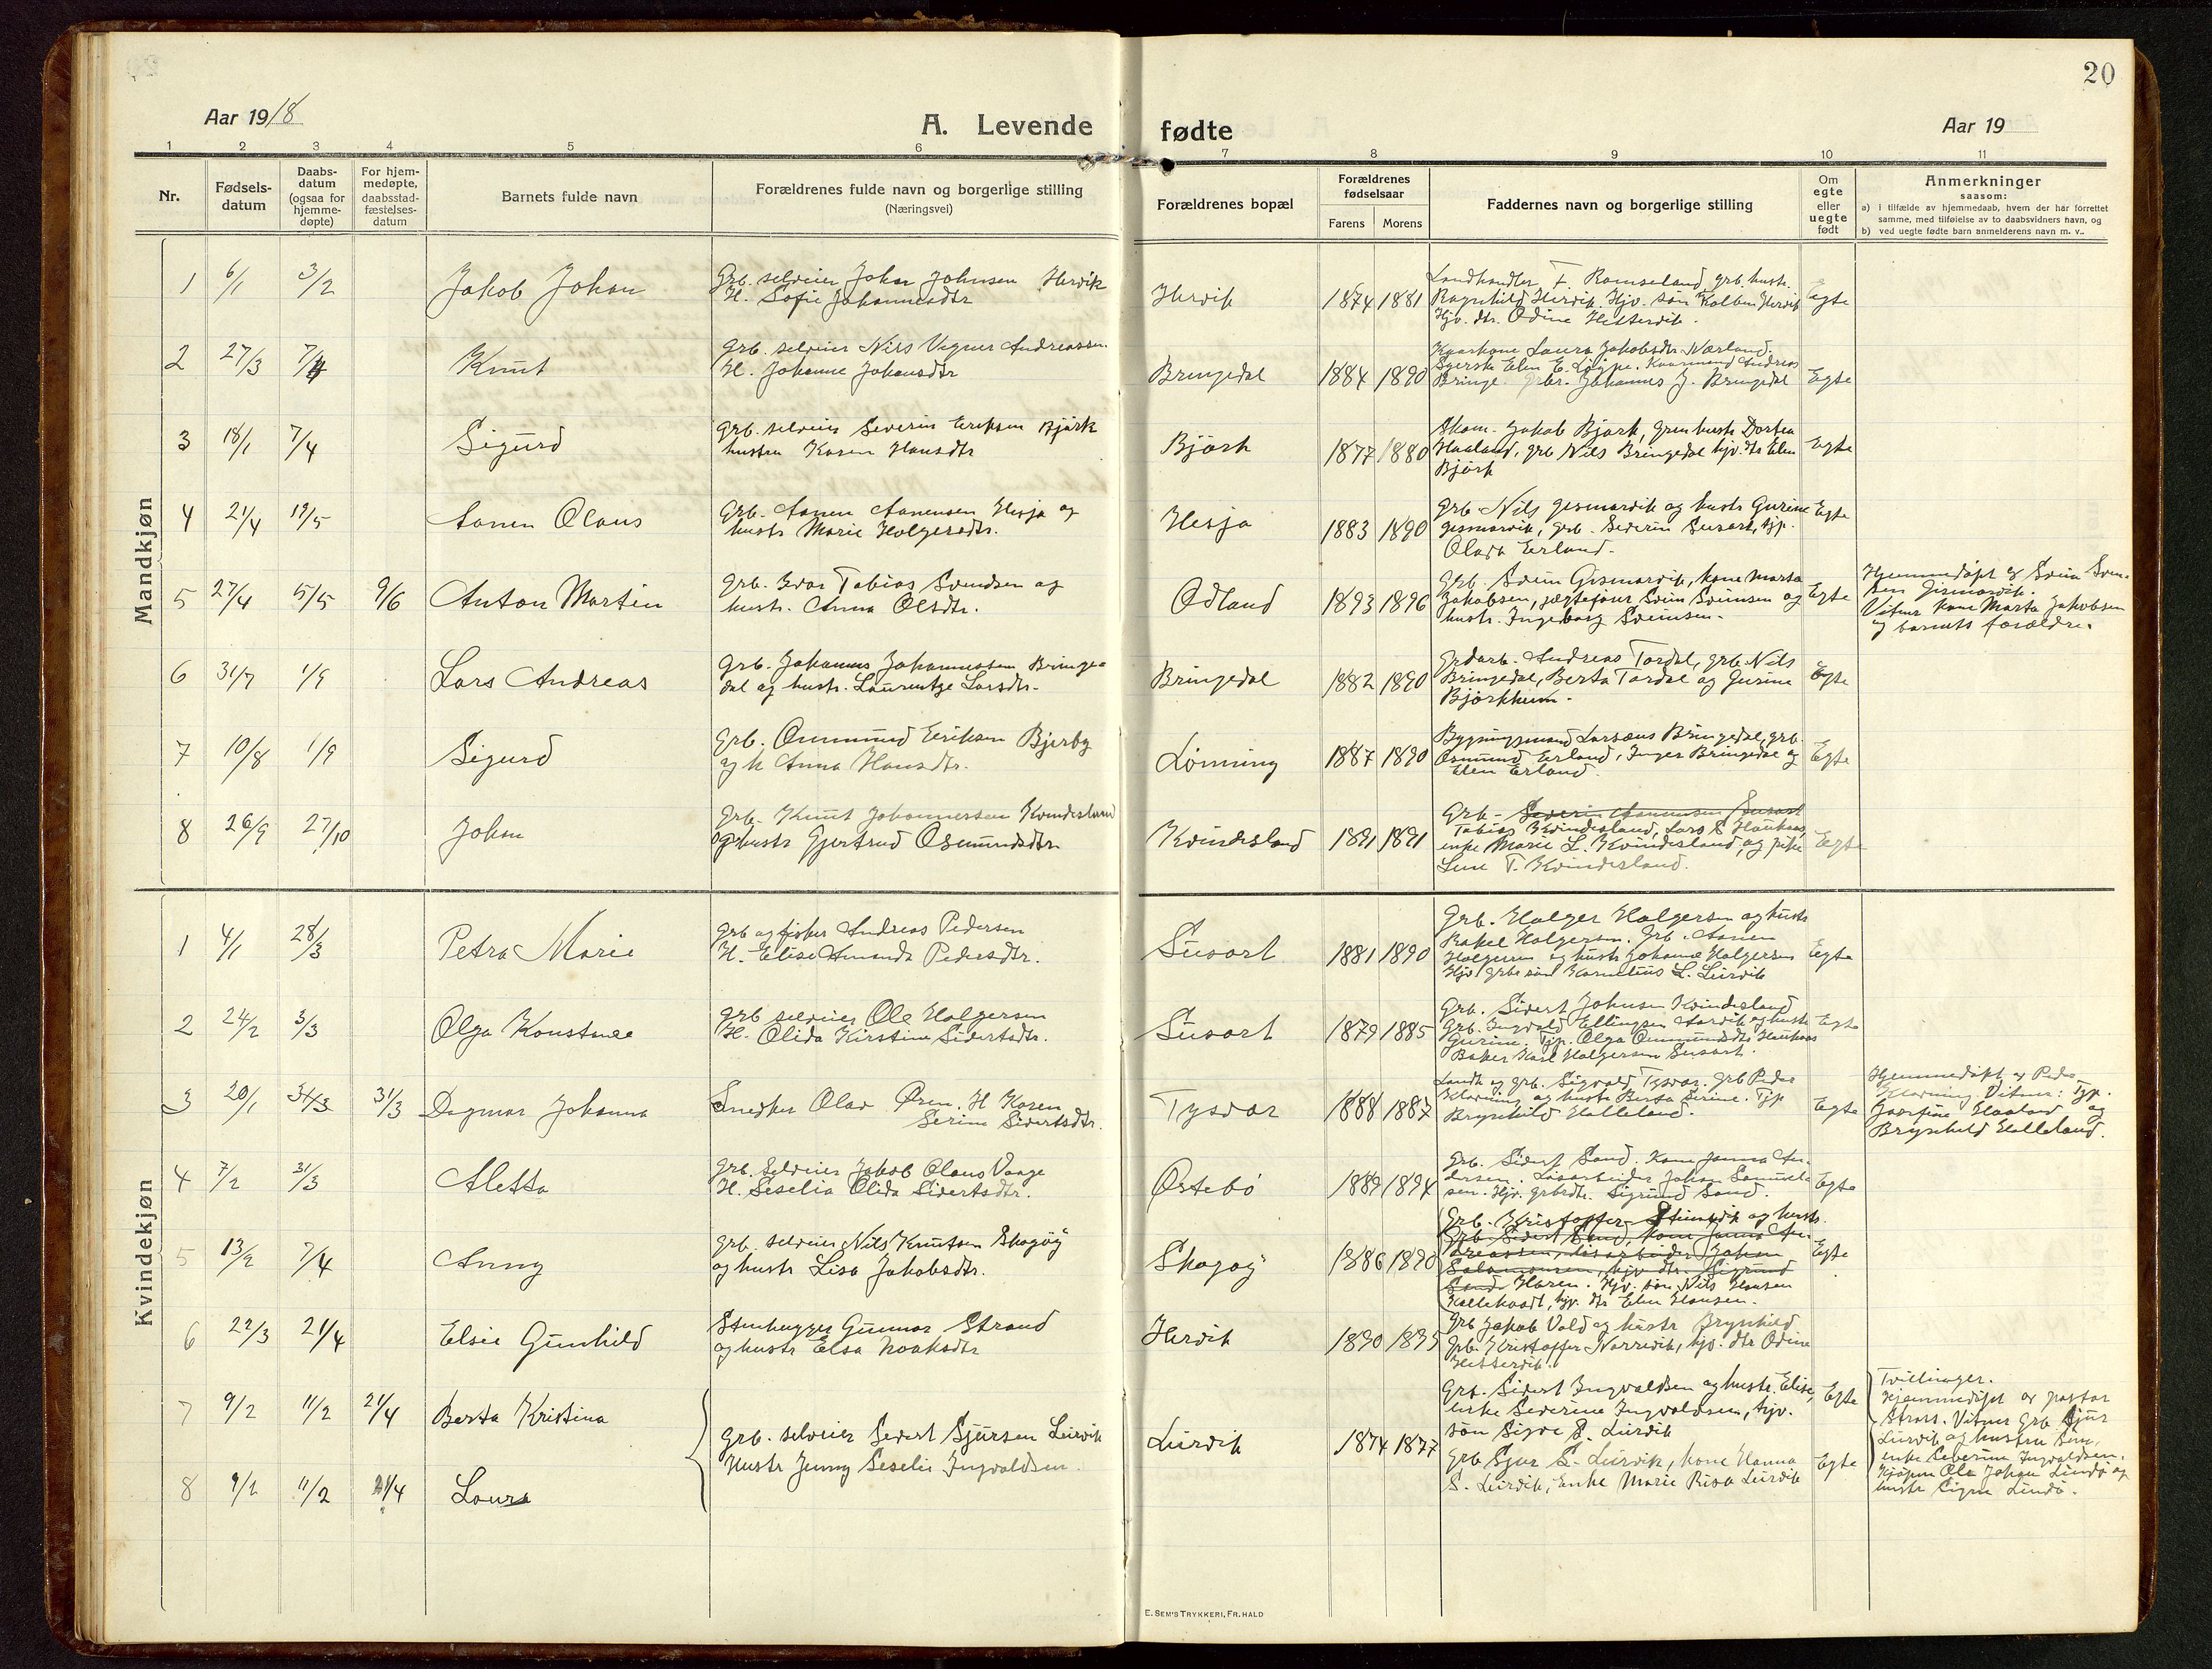 20
Aar 1918
A. Levende fødte
Aar 19
1 2 3 4 5 6 7 8 9 10 11
Nr.
Fødsels-
datum
Daabs-
datum
(ogsaa for
hjemme-
døpte)
For hjem-
medøpte,
daabsstad-
fæstelses-
datum
Barnets fulde navn
Forældrenes fulde navn og borgerlige stilling
(Næringsvei)
Forældrenes bopæl
Forældrenes
fødselsaar
Farens Morens
Faddernes navn og borgerlige stilling
Om
egte
eller
uegte
født
Anmerkninger
saasom:
a) i tilfælde av hjemmedaab, hvem der har forrettet
samme, med tilføielse av to daabsvidners navn, og
b) ved uegte fødte barn anmelderens navn m. v..
Mandkjøn
1 6/1 3/2 Jakob Johan
Grb. selveier Johan Johnsen Hervik
H. Sofie Johannesdtr
Hervik 1874 1881
Landhandler T. Ramseland, grb. hustr.
Ragnhild Hervik. Hjv. søn Kolben Hervik
Hjv. dtr. Odine Hettervik.
Egte
2 27/3 7/4 Knut
Grb. selveier Nils Vegner Andreassen.
H. Johanne Johansdtr
Bringedal 1884 1890
Kaarkone Laura Jakobsdtr Nærland.
Syerske Elen E. Kaarmand Andreas
Bringe. Johannes J. Bringedal
Egte
3 18/1 7/4 Sigurd
Grb. selveier Severin Eriksen Bjørk
hustru Karen Hansdtr
Bjørk 1877 1880
Skom. Jakob Bjørk, hustr Dortea
Haaland, grb Nils Bringedal hjv. dtr Elen
Bjørk
Egte
4 21/4 19/5 Aanen Olaus
Grb. Aanen Aanensen Hesja og
hustr Marie Holgersdtr.
Hesja 1883 1890
Grb Nils Gismarvik og hustr Gurine
Gismarvik, grb. Severin Susort, tjp.
Olava Erland.
Egte
5 27/4 5/5 9/6 Anton Martin
Grb. Ivar Tobias Svendsen og
hustr. Anna Olsdtr.
Odland 1893 1896
Grb. Svein Gismarvik, kone Marta
Jakobsen, Svein Sveinsen og
hustr. Ingeborg Sveinsen.
Egte
Hjemmedøpt af Svein Svein-
sen Gismarvik.
Vitner kone Marta Jakobsen
og barnets forældre.
6 31/7 1/9 Lars Andreas
Grb. Johannes Johannessen Bringe-
dal og hustr. Laurentze Larsdtr.
Bringedal 1882 1890
Andreas Tordal, grb. Nils
Bringedal, Berta Tordal og Gurine
Bjørkheim.
Egte
7 10/8 1/9 Sigurd
Grb. Ommund Eriksen Bjerby
og h Anna Hansdtr.
Lønning 1887 1890
Bygningsmand Larsæus Bringedal, grb.
Osmund Erland, Inger Bringedal og
Elen Erland.
Egte
8 26/9 27/10 Johan
Grb. Knut Johannessen Kvindesland
og hustr Gjertrud Osmundsdtr.
Kvindesland 1891 1891
Grb. Severin Aanensen Susort
Tobias Kvindesland, Lars S Haukaas,
enke Marie L. Kvindesland, og pike
Lene T. Kvindesland.
Egte
Kvindekjøn
1 4/1 28/3 Petra Marie
Grb og fisker Andreas Pedersen
H. Elise Amanda Pedersdtr.
Susort 1881 1890
Grb. Holger Holgersen og hustr
Rakel Holgersen. Grb. Aanen
Holgersen og hustr Johanne Holgersen
Hjv. grbs søn Kornelius L. Lurvik
Egte
2 24/2 3/3 Olga Konstance
Grb selveier Ole Holgersen
H. Olida Kirstine Sivertsdtr.
Susort 1879 1885
Grb. Sivert Johnsen Kvindesland
Grb. Ingvald Ellingsen Aarvik og hustr
Gurine. Tjp. Olga Ommundsdtr Haukaas
Baker Karl Holgersen Susort.
Egte
3 20/1 31/3 31/3 Dagmar Johanna
Snedker Olav Øren. H Karen
Serine Sivertsdtr.
Tysvær 1888 1887
Landh og grb. Sigvald Tysvær. Grb Peder
og hustr Berta Serine. Tjp
Brynhild Halleland.
Egte
Hjemmedøpt af Peder
Vitner: Tjp.
Josefine Haaland og
Brynhild Halleland.
4 7/2 31/3 Aletta
Grb. Selveier Jakob Olaus Vaage
H. Seselia Olida Sivertsdtr.
Ørtebø 1889 1894
Grb. Sivert Sand. Kone Janna An-
dersen. Løsarbeider Johan Samuel-
sen. Hjv. grbrdtr. Sigrund Sand.
Egte
5 13/2 7/4 Anny
Grb. selveier Nils Knutsen Skogøy
og hustr Lisa Jakobsdtr.
Skogøy 1886 1890
Grb. Kristoffer og hustr.
Grb. Sivert Sand, kone Janna An-
dreassen, løsarbeider Johan
Salamonsen, hjv dtr. Sigrund
Sand Karen. Hjv. søn Nils Hansen
hjv. dtr Elen Hansen.
Egte
6 22/3 21/4 Elsie Gunhild
Stenhugger Gunnar Strand
og hustr Elsa Noaksdtr
Hervik 1890 1895
Grb Jakob Vold og hustr Brynhild
Grb. Kristoffer Norrevik, hjv. dtr Odine
Hettervik.
7 9/2 11/2 21/4 Berta Kristina
Grb. selveier Sivert Sjursen Lurvik
Hustr Jenny Seselie Ingvaldsen.
Lurvik 1874 1877
Grb. Sivert Ingvaldsen og hustr. Elise,
enke Severine Ingvaldsen, hjv.
søn Sigve S. Lurvik
Egte
Tvillinger.
Hjemmedøpt av pastor
Strøm. Vitner Grb Sjur
Lurvik og hustru
enke Severine Ingvaldsen.
Ole Johan Lindø og
hustr Signe Lindø.
8 9/2 11/2 21/4 Laura
Grb Sjur S. Lurvik, kone Hanna
S. Lurvik, Enke Marie Risa Lurvik
Egte
E. SEM'S TRYKKERI, FR. HALD